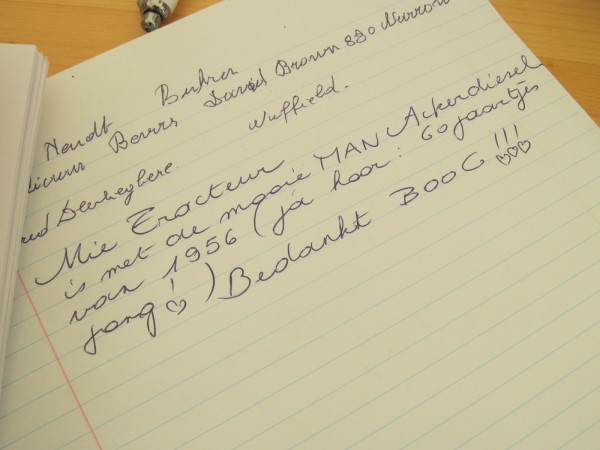 Hendt Buhra
Beurs David Brown 880 Narrow
Nuffield.
Mie Tracteur
is met de mooie MAN Ackerdiesel
van 1956 (ja hoor: 60 jaartjes
jong! ♡) Bedankt BOOG!!! ♡♡♡